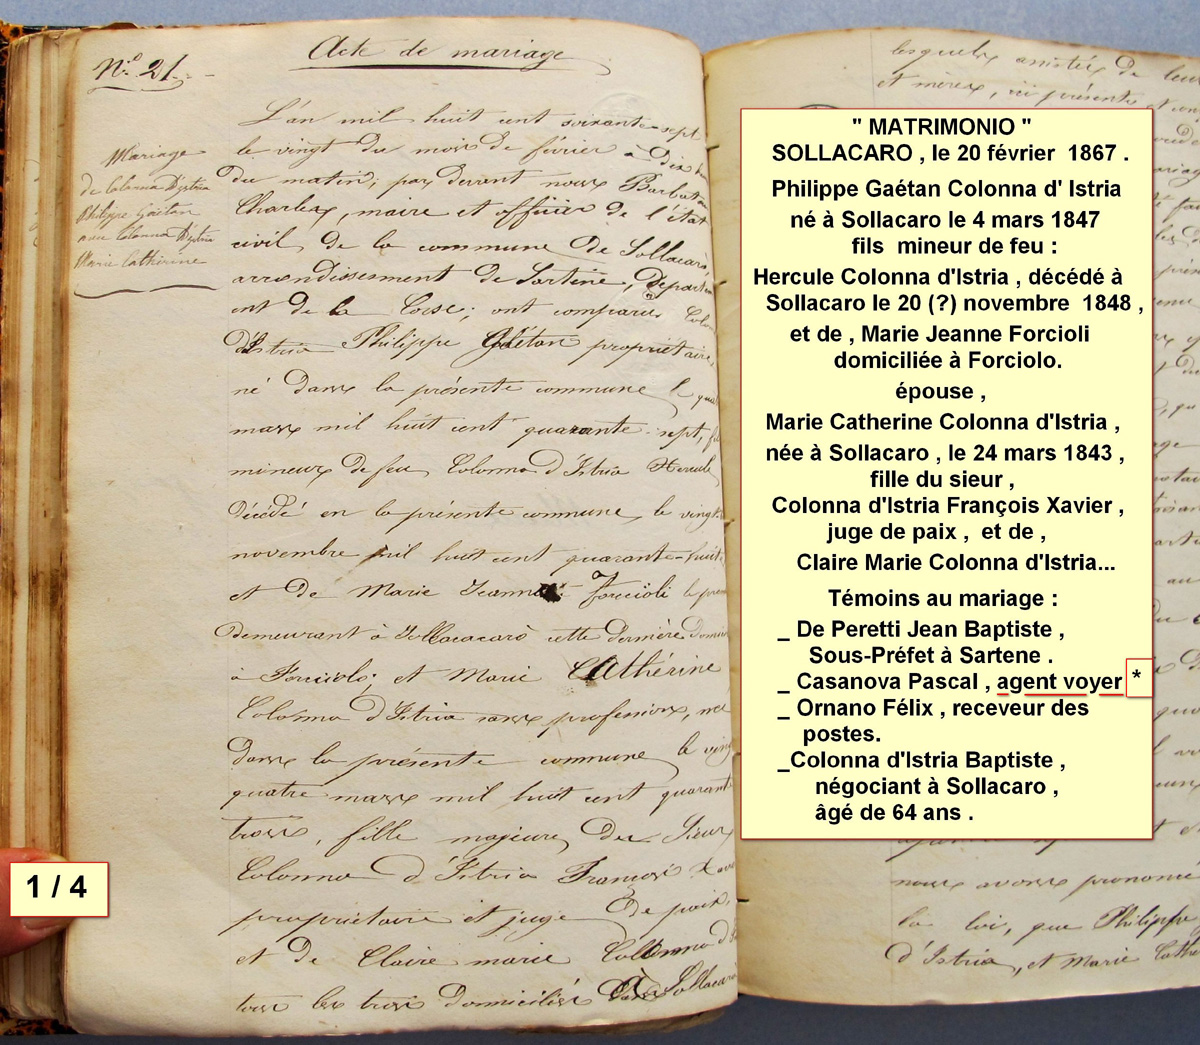 N.º 21.
Acte de mariage
Mariage
de Colonna D'istria
Philippe Gaëtan
avec Colonna D'istria
Marie Cathérine
L'an mil huit cent soixante-sept
le vingt du mois de fevrier à dix
du matin; par devant nous
Charles, maire et officier de l'état
civil de la commune de Sollacarò,
arrondissement de Sartène, Départem
ent de la Corse; ont comparu Colon
d'Istria Philippe Gaëtan propriétaire,
né dans la présente commune le
mars mil huit cent quarante-sept, fils
mineur de feu Colonna d'Istria Hercule
décédé en la présente commune, le vingt
novembre mil huit cent quarante-huit,
et de Marie Jeanne Forcioli le prem
demeurant à Sollacarò cette dernière domici
à Forciolo; et Marie Cathérine
Colonna d'Istria sans profession, née
dans la présente commune le ving
quatre mars mil huit cent quarant
trois, fille majeure du Sieur
Colonna d'Istria François Xav
propriétaire et juge de paix,
et de Claire marie Colonna d'I
tous les trois Domiciliés dans Sollacarò
lesquels assistés de leur
et mères, ici présents et con
" MATRIMONIO "
SOLLACARO , le 20 février 1867 .
Philippe Gaétan Colonna d' Istria
né à Sollacaro le 4 mars 1847
fils mineur de feu :
Hercule Colonna d'Istria , décédé à
Sollacaro le 20 (?) novembre 1848 ,
et de , Marie Jeanne Forcioli
domiciliée à Forciolo.
épouse ,
Marie Catherine Colonna d'Istria ,
née à Sollacaro , le 24 mars 1843 ,
fille du sieur ,
Colonna d'Istria François Xavier ,
juge de paix , et de ,
Claire Marie Colonna d'Istria...
Témoins au mariage :
_ De Peretti Jean Baptiste ,
Sous-Préfet à Sartene .
_ Casanova Pascal , agent voyer *
_ Ornano Félix , receveur des
postes.
_Colonna d'Istria Baptiste ,
négociant à Sollacaro ,
âgé de 64 ans .
nous avons prononcé
la loi, que Philippe
d'Istria, et Marie Cathé
1 / 4